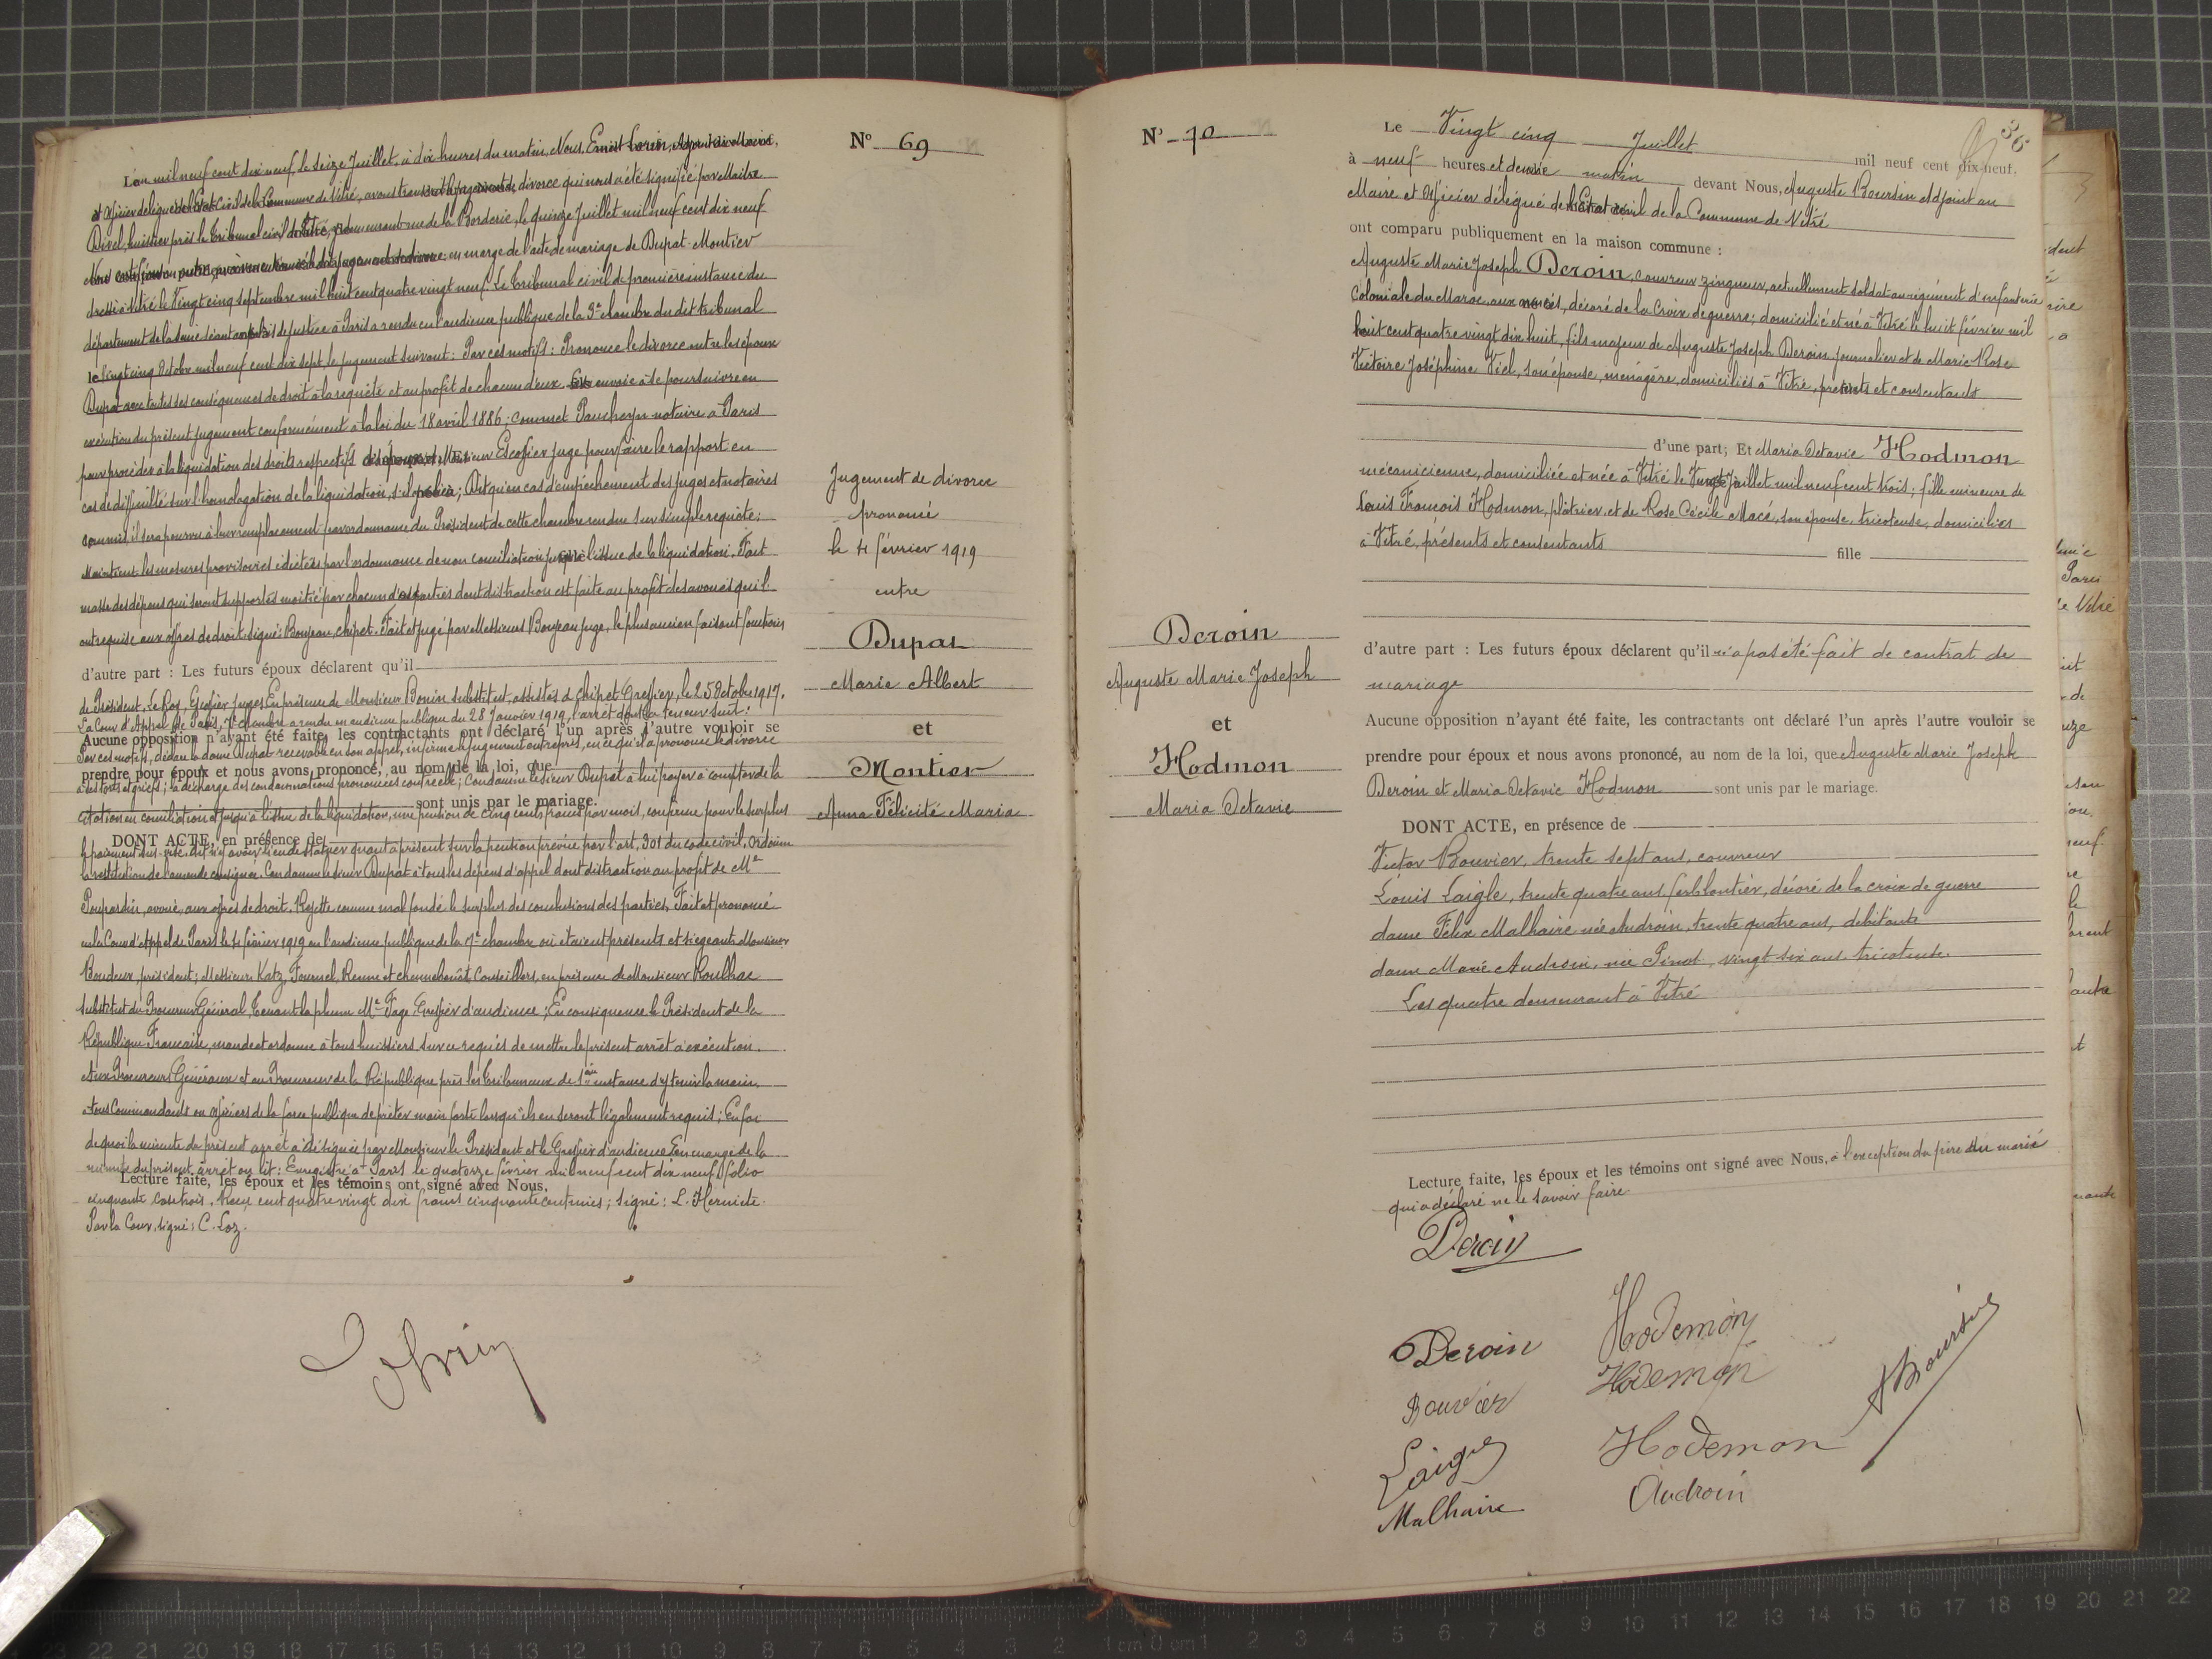 N° 69
L'an mil neuf cent dix neuf, le seize Juillet, à dix heures du matin, Nous, Ernest Lorin, Adjoint au Maire,
et officier délégué de l'Etat-Civil de la Commune de Vitré, avons transcrit le jugement de divorce qui nous a été signifié par Maître
huissier près le Tribunal civil de Vitré, y demeurant rue de la Borderie, le quinze Juillet mil neuf cent dix neuf
en marge de l'acte de mariage de Dupat-Montier
dressé à Vitré le Vingt cinq septembre mil huit cent quatre vingt neuf. Le Tribunal civil de première instance du
département de la Seine séant au palais de justice à Paris a rendu en l'audience publique de la 3e chambre du dit tribunal
le Vingt cinq Octobre mil neuf cent dix sept, le jugement suivant : Par ces motifs : Prononce le divorce entre les époux
Dupat avec toutes ses conséquences de droit à la requête et au profit de chacun d'eux. Les envoie à se poursuivre en
exécution du présent jugement conformément à la loi du 18 avril 1886 ; commet notaire à Paris
pour procéder à la liquidation des droits respectifs des époux et Monsieur Escofier juge pour faire le rapport en
cas de difficulté sur l'homologation de la liquidation, s'il y a lieu ; Dit qu'en cas d'empêchement des juges et notaires
commis, il sera pourvu à leur remplacement par ordonnance du Président de cette chambre rendue sur simple requête ;
Maintient les mesures provisoires édictées par l'ordonnance de non conciliation jusqu'à l'issue de la liquidation. Fait
masse des dépens qui seront supportés moitié par chacun des parties dont distraction est faite au profit des avoués qui l'
ont requise aux offres de droit. signé : Boujeau, Chipet. Fait et jugé par Messieurs Boujeau juge, le plus ancien faisant fonctions
d'autre part : Les futurs époux déclarent qu'il
de Président, Le Roy, Escofier juges En présence de Monsieur Bouin substitut, assistés de Chipet Greffier, le 25 Octobre 1917.
La Cour d'Appel de Paris, 7e chambre a rendu en audience publique du 28 Janvier 1919, l'arrêt dont la teneur suit :
Aucune opposition n'ayant été faite, les contractants ont déclaré l'un après l'autre vouloir se
Par ces motifs, déclare la dame Dupat recevable en son appel, infirme le jugement entrepris, en ce qu'il a prononcé le divorce
prendre pour époux et nous avons prononcé, au nom de la loi, que
à ses torts et griefs ; la décharge des condamnations prononcées contre elle ; Condamne le sieur Dupat à lui payer à compter de la
sont unis par le mariage.
citation en conciliation et jusqu'à l'issue de la liquidation, une pension de cinq cents francs par mois, confirme pour le surplus
DONT ACTE, en présence de
avoir lieu de statuer quant à présent sur la pension prévue par l'art. 301 du code civil, Ordonne
la restitution de l'amende consignée, Condamne le sieur Dupat à tous les dépens d'appel dont distraction au profit de Me
Poupardin, avoué, aux offres de droit. Rejette comme mal fondé le surplus des conclusions des parties. Fait et prononcé
en la Cour d'Appel de Paris le 4 février 1919 en l'audience publique de la 7e chambre où étaient présents et siégeant Monsieur
président ; Messieurs Katz, Fournel, Conseillers, en présence de Monsieur Roulhac
substitut du Procureur Général, Tenant la plume Me Fage, Greffier d'audience ; En conséquence le Président de la
République Française, mande et ordonne à tous huissiers sur ce requis de mettre le présent arrêt à exécution.
Aux Procureurs Généraux et au Procureur de la République près les Tribunaux de 1ère instance d'y tenir la main
à tous Commandants ou officiers de la force publique de prêter main forte lorsqu'ils en seront légalement requis ; En foi
de quoi la minute du présent arrêt a été signée par Monsieur le Président et le Greffier d'audience. En marge de la
minute du présent arrêt on lit : Enregistré à Paris le quatorze février mil neuf cent dix neuf, folio
Lecture faite, les époux et les témoins ont signé avec Nous.
cinquante case trois. Reçu cent quatre vingt dix francs cinquante centimes ; signé : L. Hermite.
Par la Cour, signé : C. Loz.
Jugement de divorce
prononcé
le 4 février 1919
entre
Dupat
Marie Albert
et
Montier
Anna Félicité Maria
N° 70
36
Le Vingt cinq Juillet mil neuf cent dix-neuf.
à neuf heures et demie matin devant Nous, Auguste Boursin Adjoint au
Maire et Officier délégué de l'Etat civil de la Commune de Vitré
ont comparu publiquement en la maison commune :
Auguste Marie Joseph Deroin, couvreur zingueur, actuellement soldat au régiment d'infanterie
Coloniale du Maroc aux armées, décoré de la Croix de guerre ; domicilié et né à Vitré le huit février mil
huit cent quatre vingt dix huit, fils majeur de Auguste Joseph Deroin journalier et de Marie Rose
Victoire Joséphine Viel, son épouse, ménagère, domiciliés à Vitré, présents et consentants
d'une part ; Et Maria Octavie Hodmon
mécanicienne, domiciliée et née à Vitré le Juillet mil neuf cent trois ; fille mineure de
Louis François Hodmon, plâtrier, et de Rose Cécile Macé, son épouse, tricoteuse, domiciliés
à Vitré, présents et consentants fille
d'autre part : Les futurs époux déclarent qu'il n'a pas été fait de contrat de
mariage
Aucune opposition n'ayant été faite, les contractants ont déclaré l'un après l'autre vouloir se
prendre pour époux et nous avons prononcé, au nom de la loi, que Auguste Marie Joseph
Deroin et Maria Octavie Hodmon sont unis par le mariage.
DONT ACTE, en présence de
Victor Bouvier, trente sept ans, couvreur
Louis Laigle, trente quatre ans, ferblantier, décoré de la croix de guerre
dame Félix Malhaire née Audroin, trente quatre ans, débitante
dame Marie Audroin, née Pinot, vingt six ans, tricoteuse.
Les quatre demeurant à Vitré
Lecture faite, les époux et les témoins ont signé avec Nous, à l'exception du père du marié
qui a déclaré ne le savoir faire.
Deroin
Auguste Marie Joseph
et
Hodmon
Maria Octavie
Deroin
Deroin
Hodemon
Bouvier
Hodemon
ABoursin
Laigle
Hodemon
Malhaire
Audroin